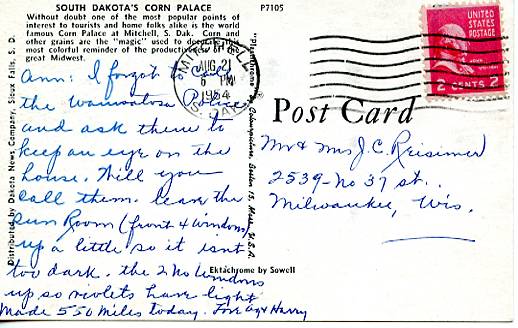 SOUTH DAKOTA'S CORN PALACE
Without doubt one of the most popular points of
interest to tourists and home folks alike is the world
famous Corn Palace at Mitchell, S. Dak. Corn and
other grains are the "magic" used to
most colorful reminder of the
great Midwest.
P7105
Ann: I forgot to call
the Wauwatosa Police
and ask them to
keep an eye on the
house. Will you
call them. Leave the
Sun Room (front 4 windows)
up a little so it isnt
too dark. the 2 No windows
up so violets have light
Made 550 miles today.
Harry
Distributed by Dakota News Company, Sioux Falls, S. D.
"Plastichrome" by Colourpicture, Boston 15, Mass. U.S.A.
Ektachrome by Sowell
MITCHELL
AUG 21
6 PM
1954
S. DAK.
UNITED
STATES
POSTAGE
JOHN
2 CENTS 2
Post Card
Mr & Mrs J.C. Reisimer
2539-No 37 st.
Milwaukee, Wis.